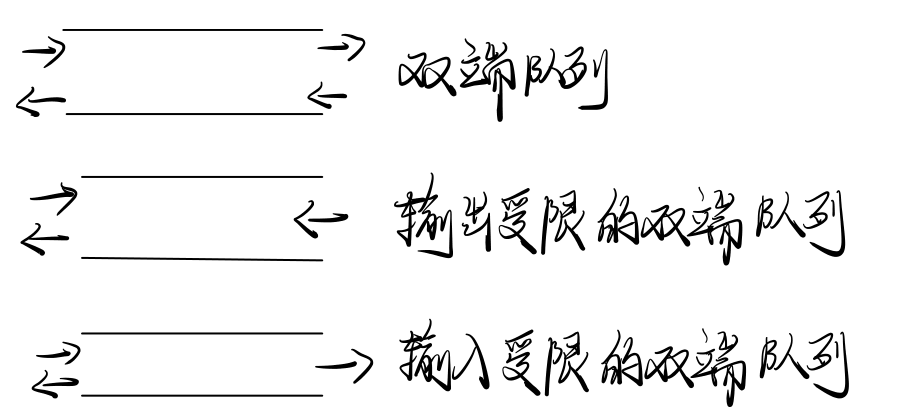 双端队列
输出受限的双端队列
输入受限的双端队列